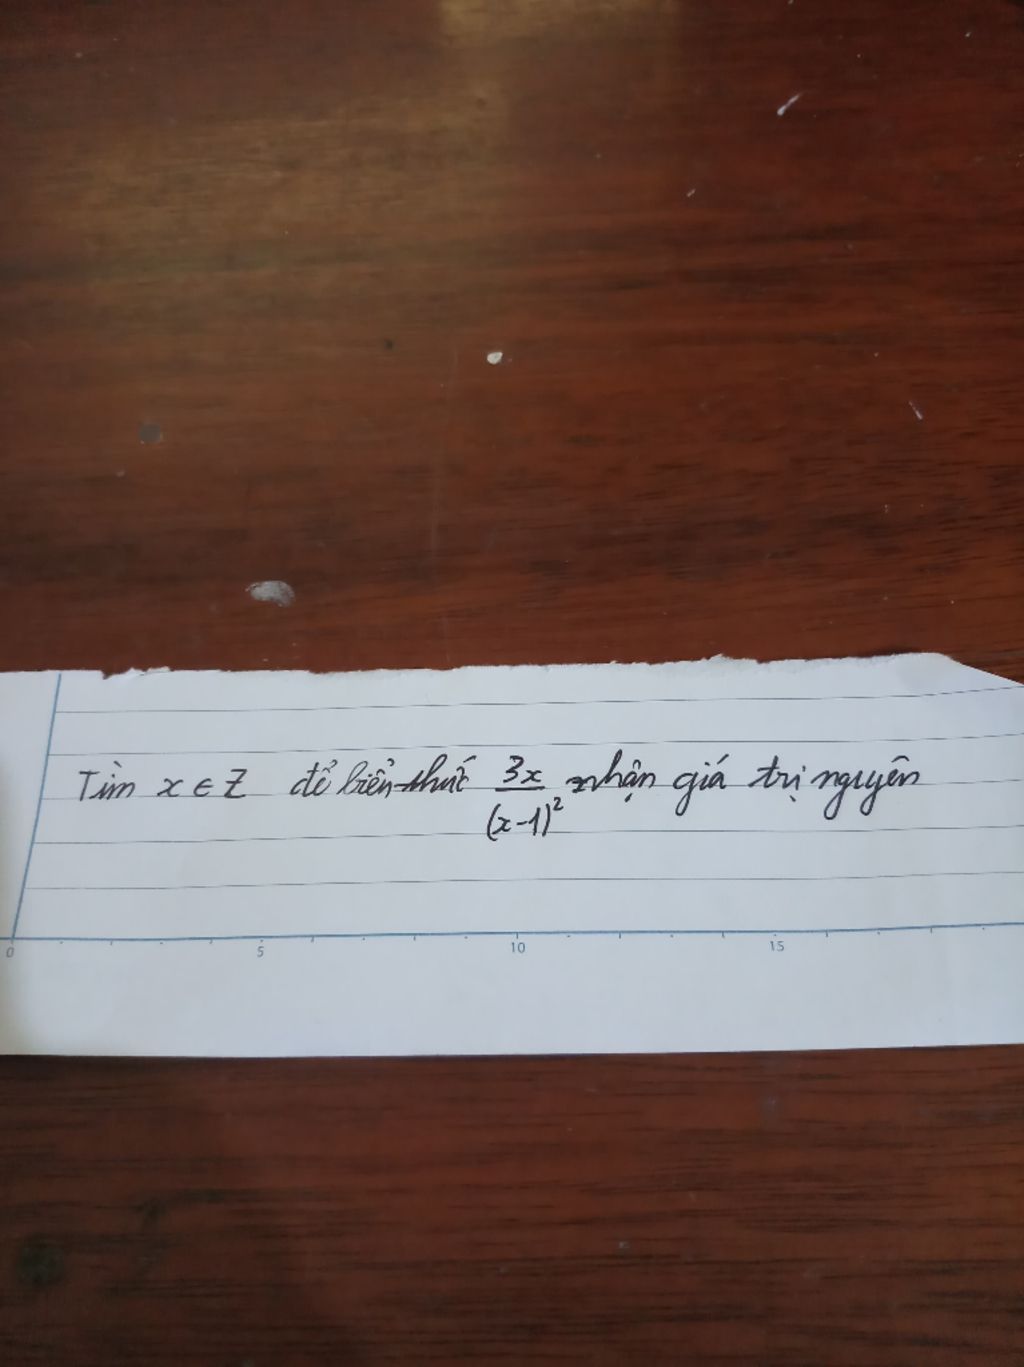 Tìm x ∈ Z để biểu thức 3x/(x-1)² nhận giá trị nguyên
0 5 10 15